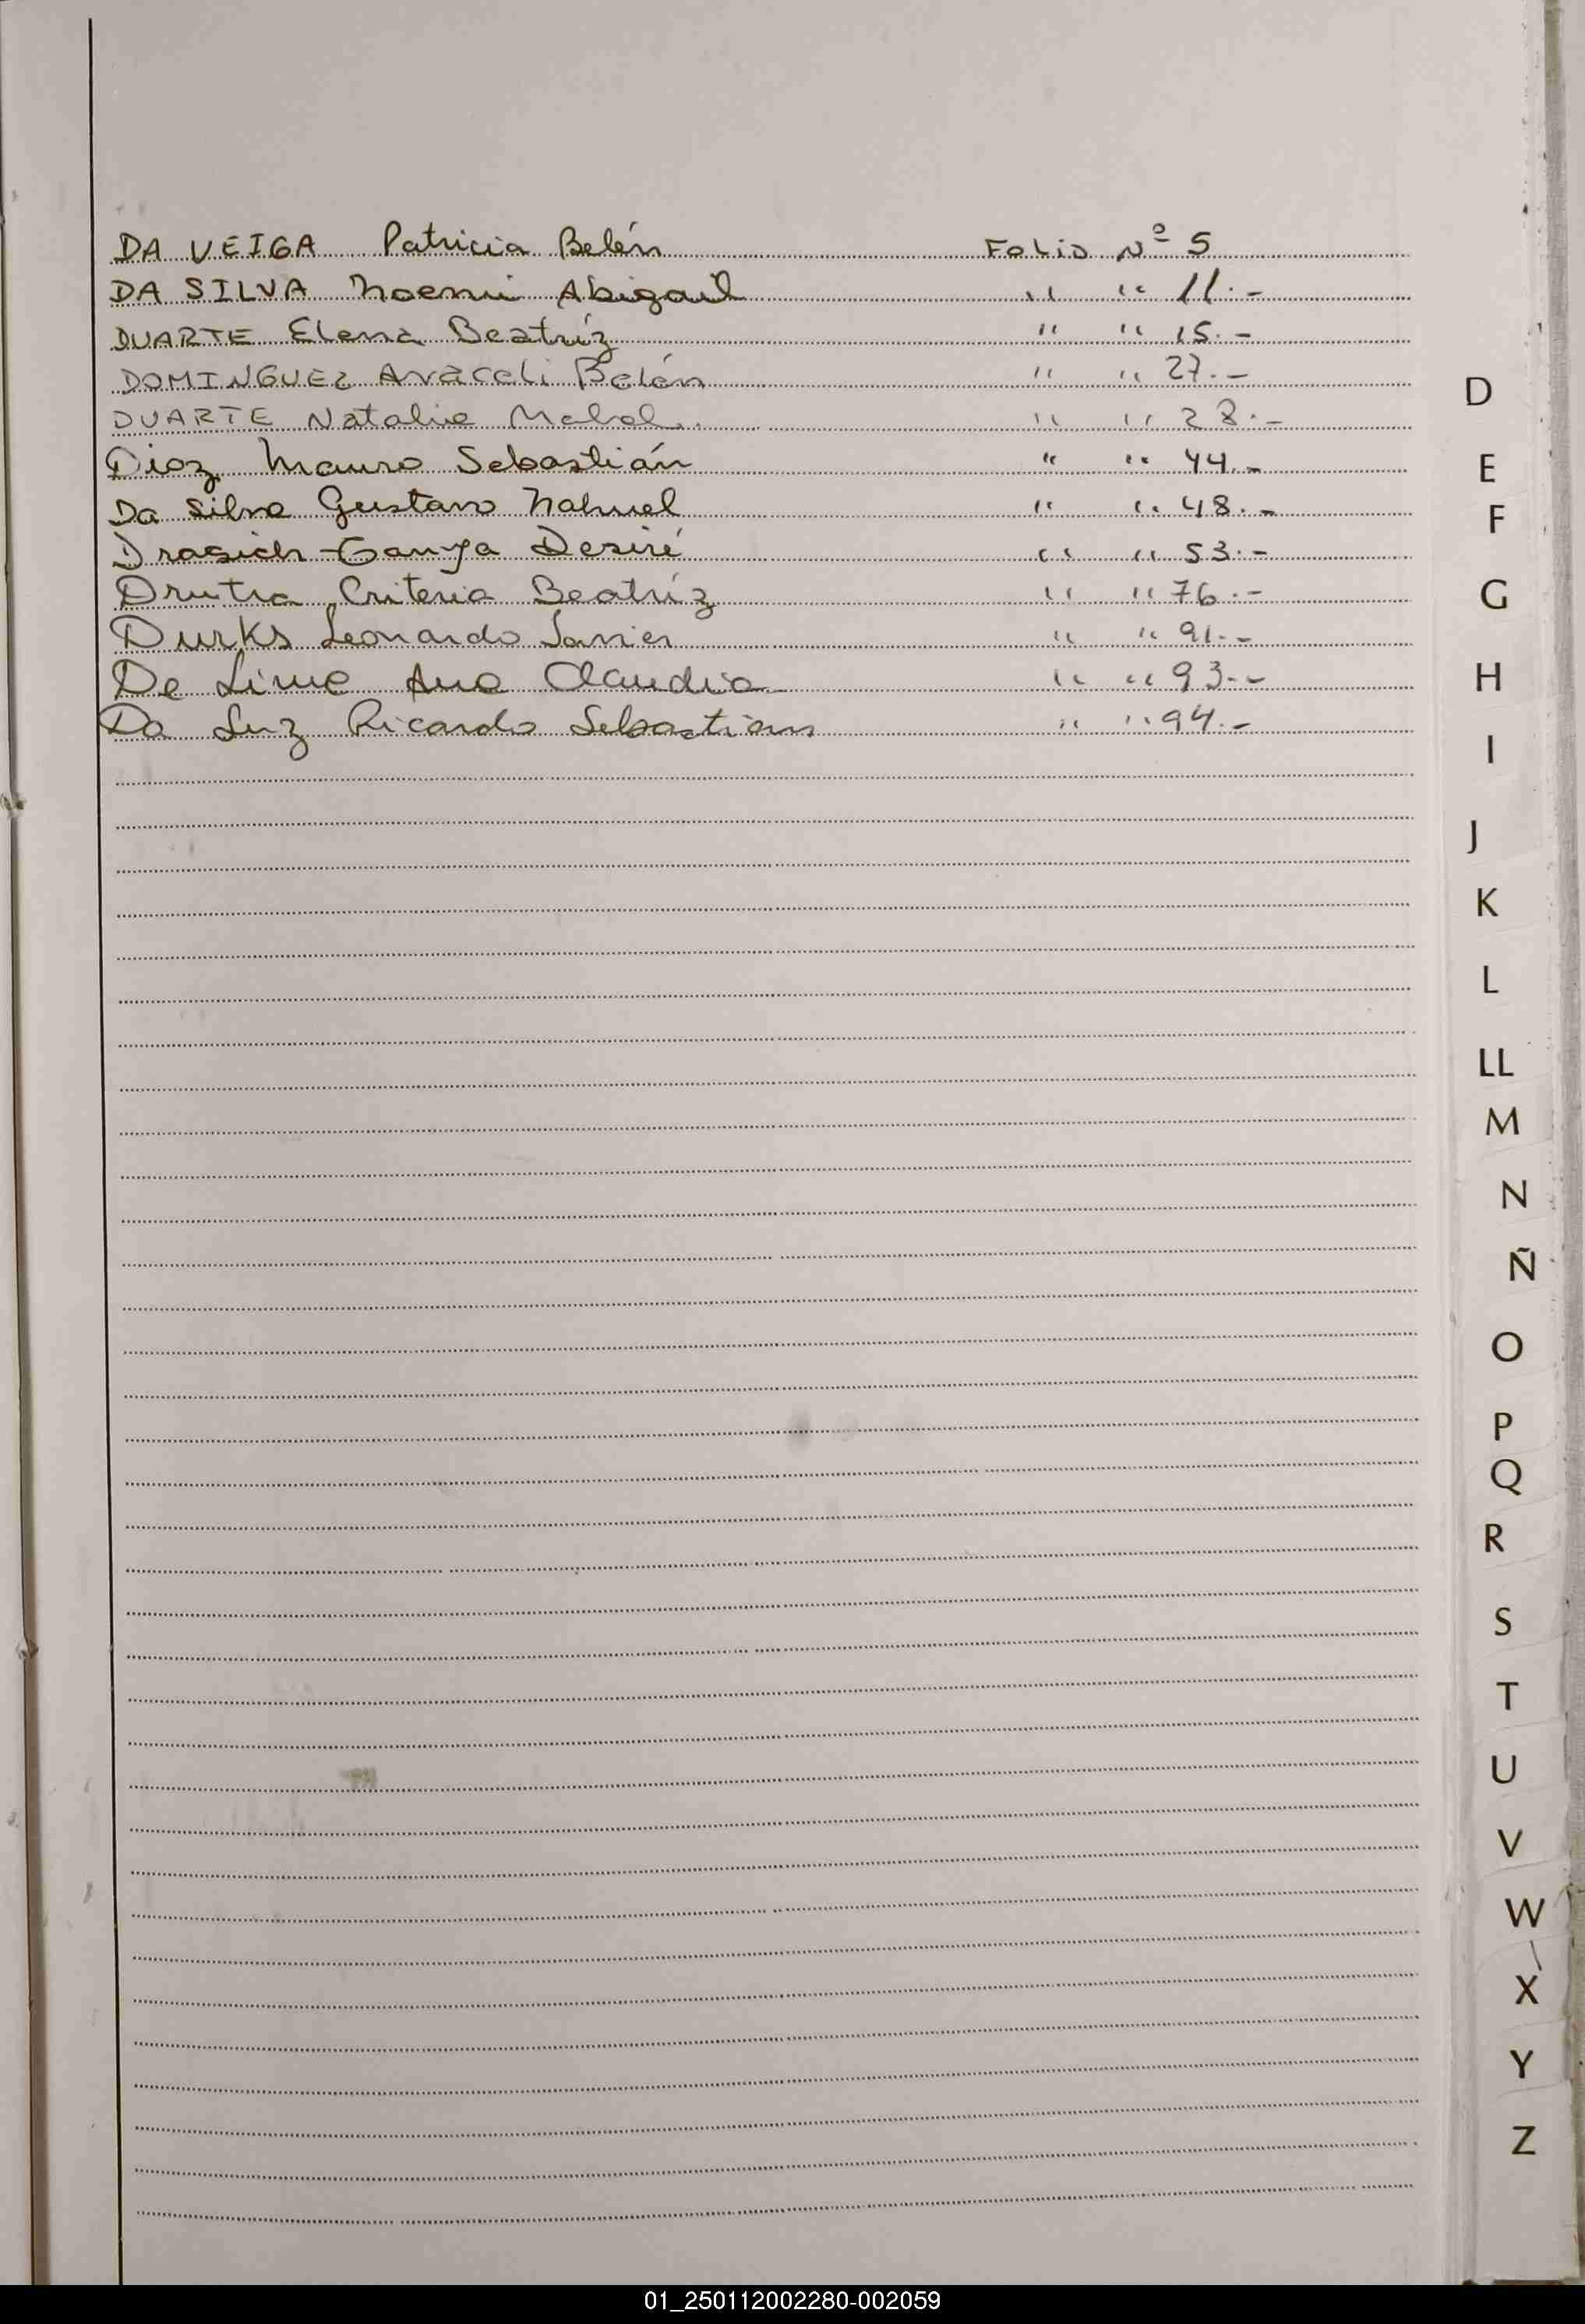 DA VEIGA Patricia Belén Folio Nº 5
DA SILVA Noemi Abigail " " 11.-
DUARTE Elena Beatríz " " 15.-
DOMINGUEZ Araceli Belén " " 27.-
DUARTE Natalia Mabel. " " 28.-
Diaz Mauro Sebastián " " 44.-
Da Silva Gustavo Nahuel " " 48.-
Drasich Tanya Desiré " " 53.-
Drutra Criteria Beatríz " " 76.-
Durks Leonardo Javier " " 91.-
De Lima Ana Claudia " " 93.-
Da Luz Ricardo Sebastian " " 94.-
D
E
F
G
H
I
J
K
L
LL
M
N
Ñ
O
P
Q
R
S
T
U
V
W
X
Y
Z
01_250112002280-002059